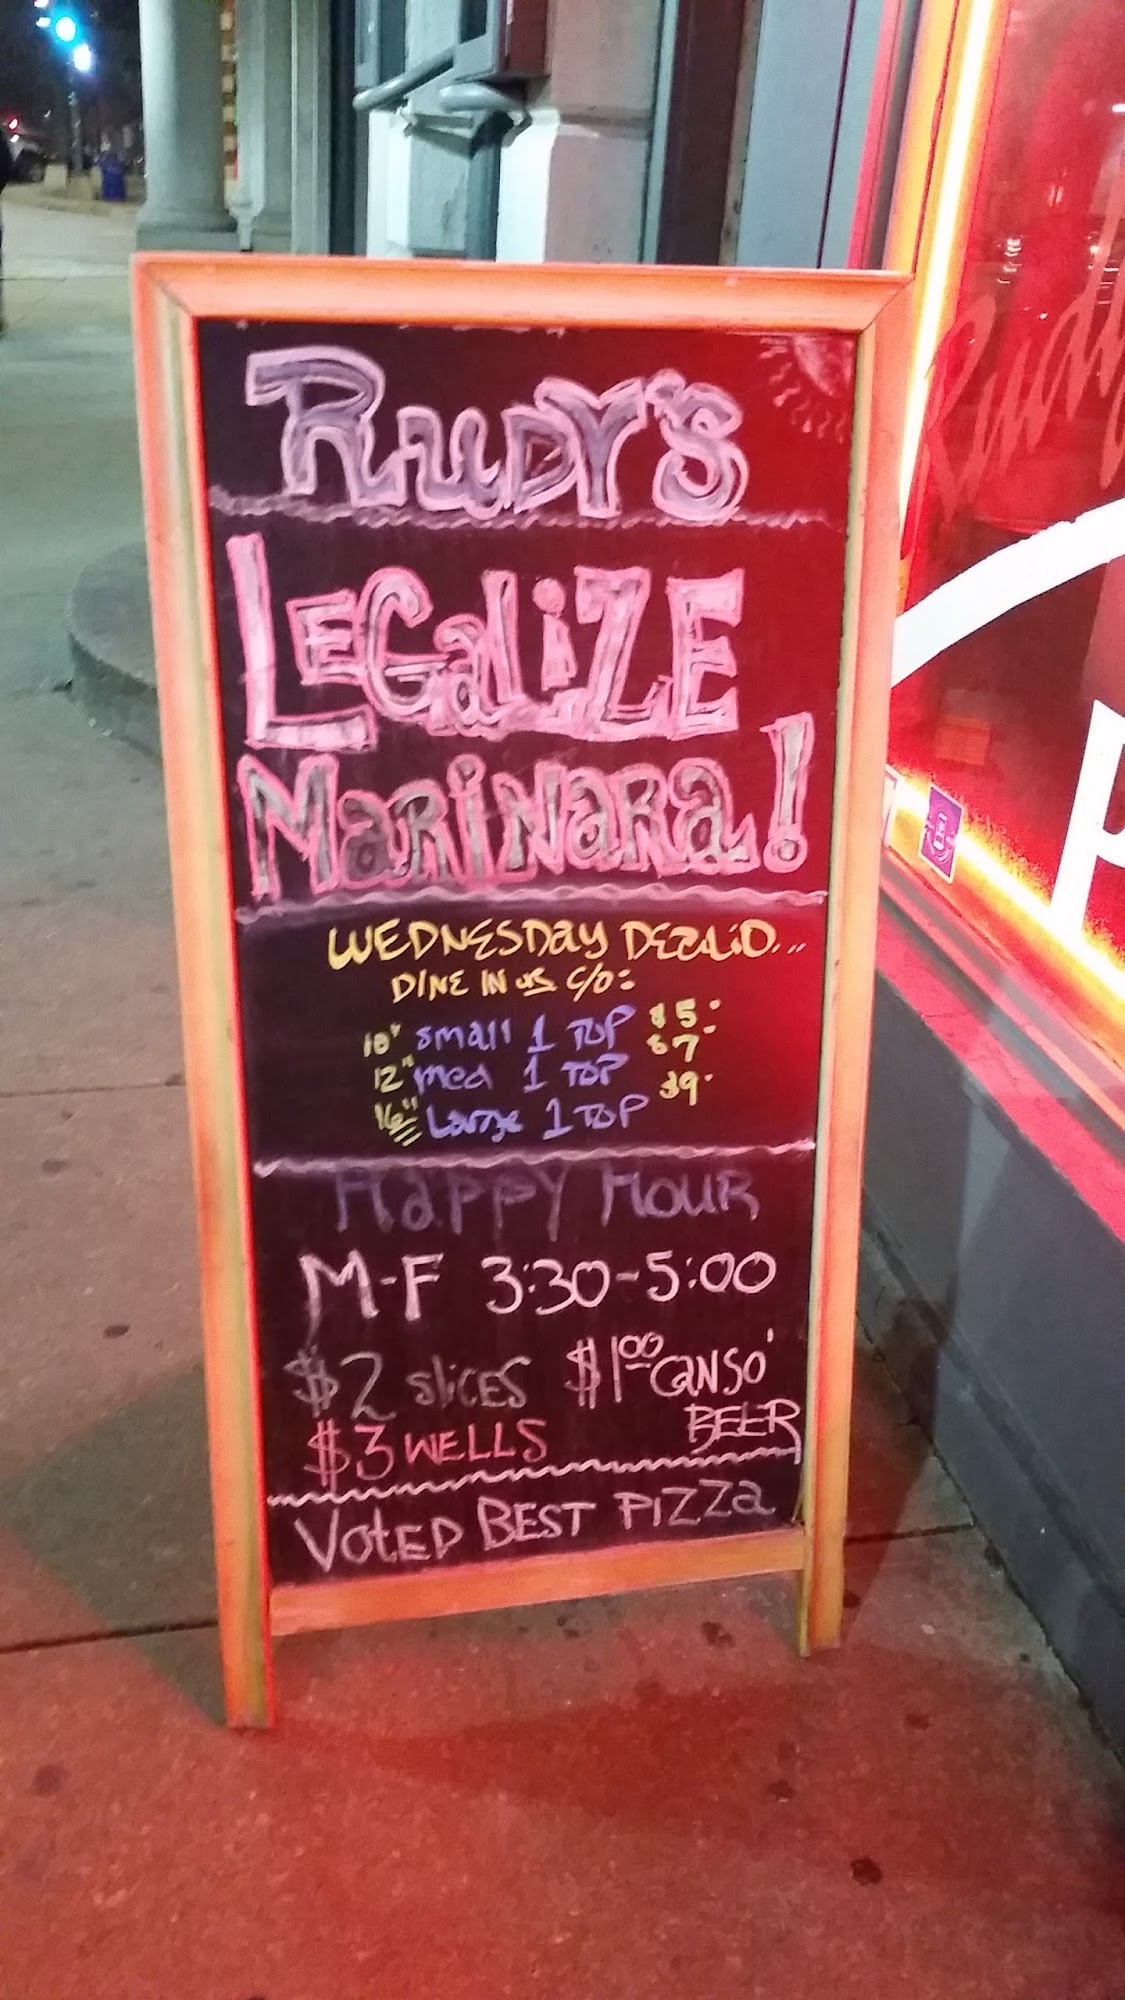 RUDY'S
LEGALIZE
MARINARA!
WEDNESDAY DEALIO...
DINE IN or C/O:
10" small 1 TOP $5.
12" med 1 TOP $7
16" Large 1 TOP $9.
HAPPY HOUR
M-F 3:30-5:00
$2 SLICES $1.00 CANSO'
$3 WELLS BEER
VOTED BEST PIZZA
Rudy
P